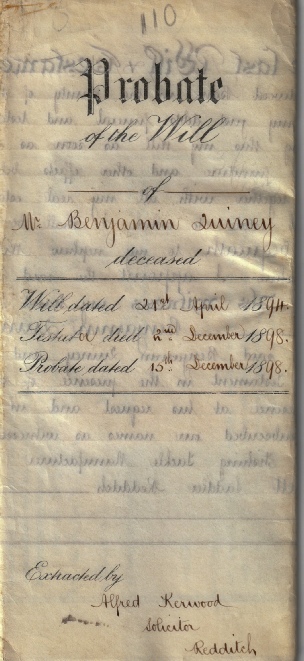 110
Probate
of the Will
of
Mr Benjamin Quiney
deceased
Will dated 21st April 1894.
Testator died 2nd December 1898.
Probate dated 15th December 1898.
Extracted by
Alfred Kerwood
Solicitor
Redditch